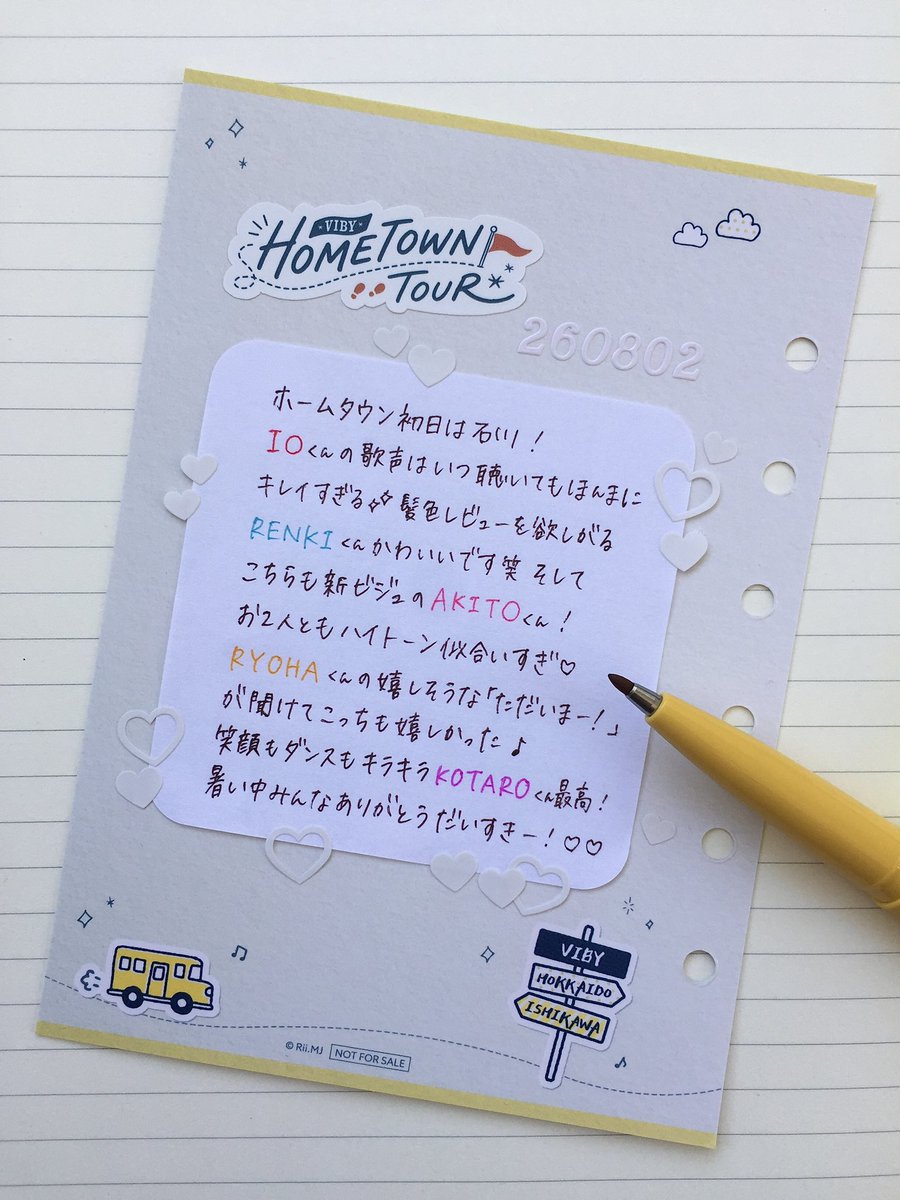 VIBY
HOMETOWN
TOUR
260802
ホームタウン初日は石川！
IOくんの歌声はいつ聴いてもほんまに
キレイすぎる✨髪色レビューを欲しがる
RENKIくんかわいいです笑 そして
こちらも新ビジュのAKITOくん！
お2人ともハイトーン似合いすぎ♡
RYOHAくんの嬉しそうな「ただいまー！」
が聞けてこっちも嬉しかった♪
笑顔もダンスもキラキラKOTAROくん最高！
暑い中みんなありがとうだいすきー！♡♡
VIBY
HOKKAIDO
ISHIKAWA
© Rii.MJ NOT FOR SALE